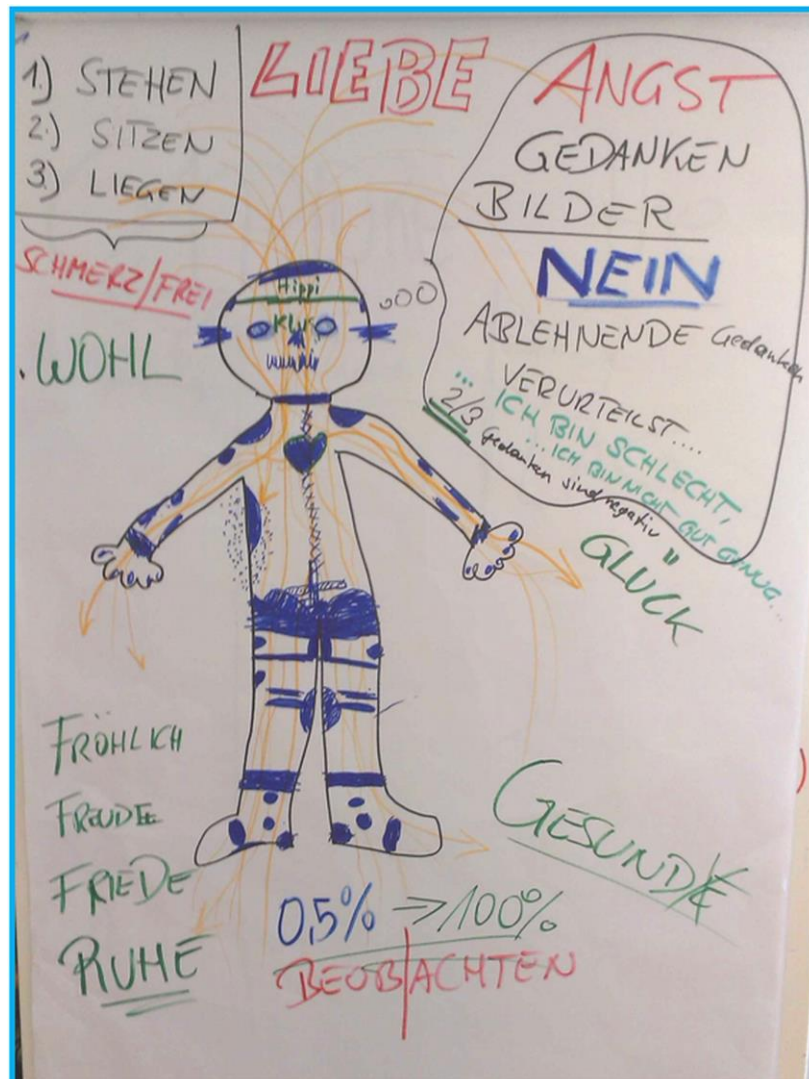 1.) STEHEN
2.) SITZEN
3.) LIEGEN
SCHMERZ/FREI
WOHL
LIEBE
ANGST
GEDANKEN
BILDER
NEIN
ABLEHNENDE Gedanken
VERURTEILST....
... ICH BIN SCHLECHT,
... ICH BIN NICHT GUT GENUG...
2/3 Gedanken sind negativ
Hippi
GLÜCK
FRÖHLICH
FREUDE
FRIEDE
RUHE
GESUND
0,5% → 100%
BEOB|ACHTEN